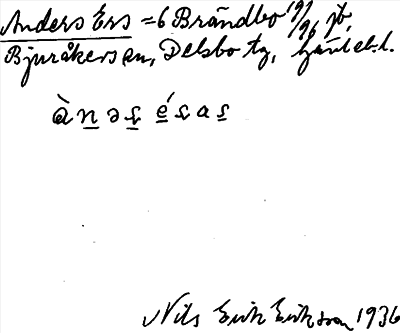 Anders Ers = 6 Brändbo 19/96 jb,
Bjuråkers sn, Delsbo tg, Gävleb. l.
ànəṣ éṣaṣ
Nils Erik Eriksson 1936